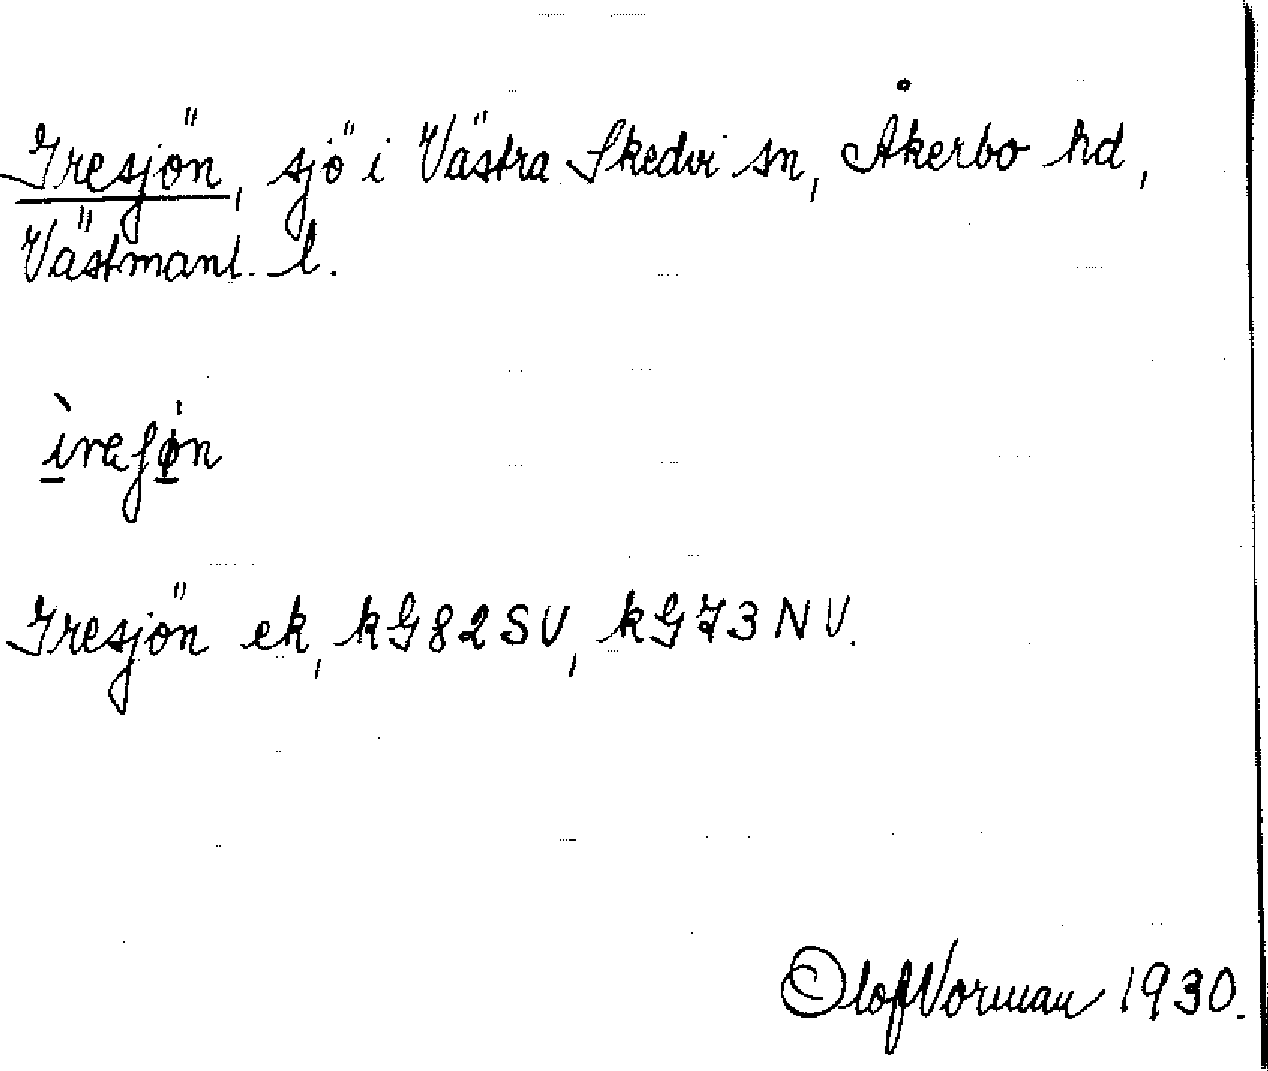 Iresjön, sjö i Västra Skedvi sn, Åkerbo hd,
Västmanl. l.
Iresjön ek, kG82SV, kG73NV.
Olof Norman 1930.